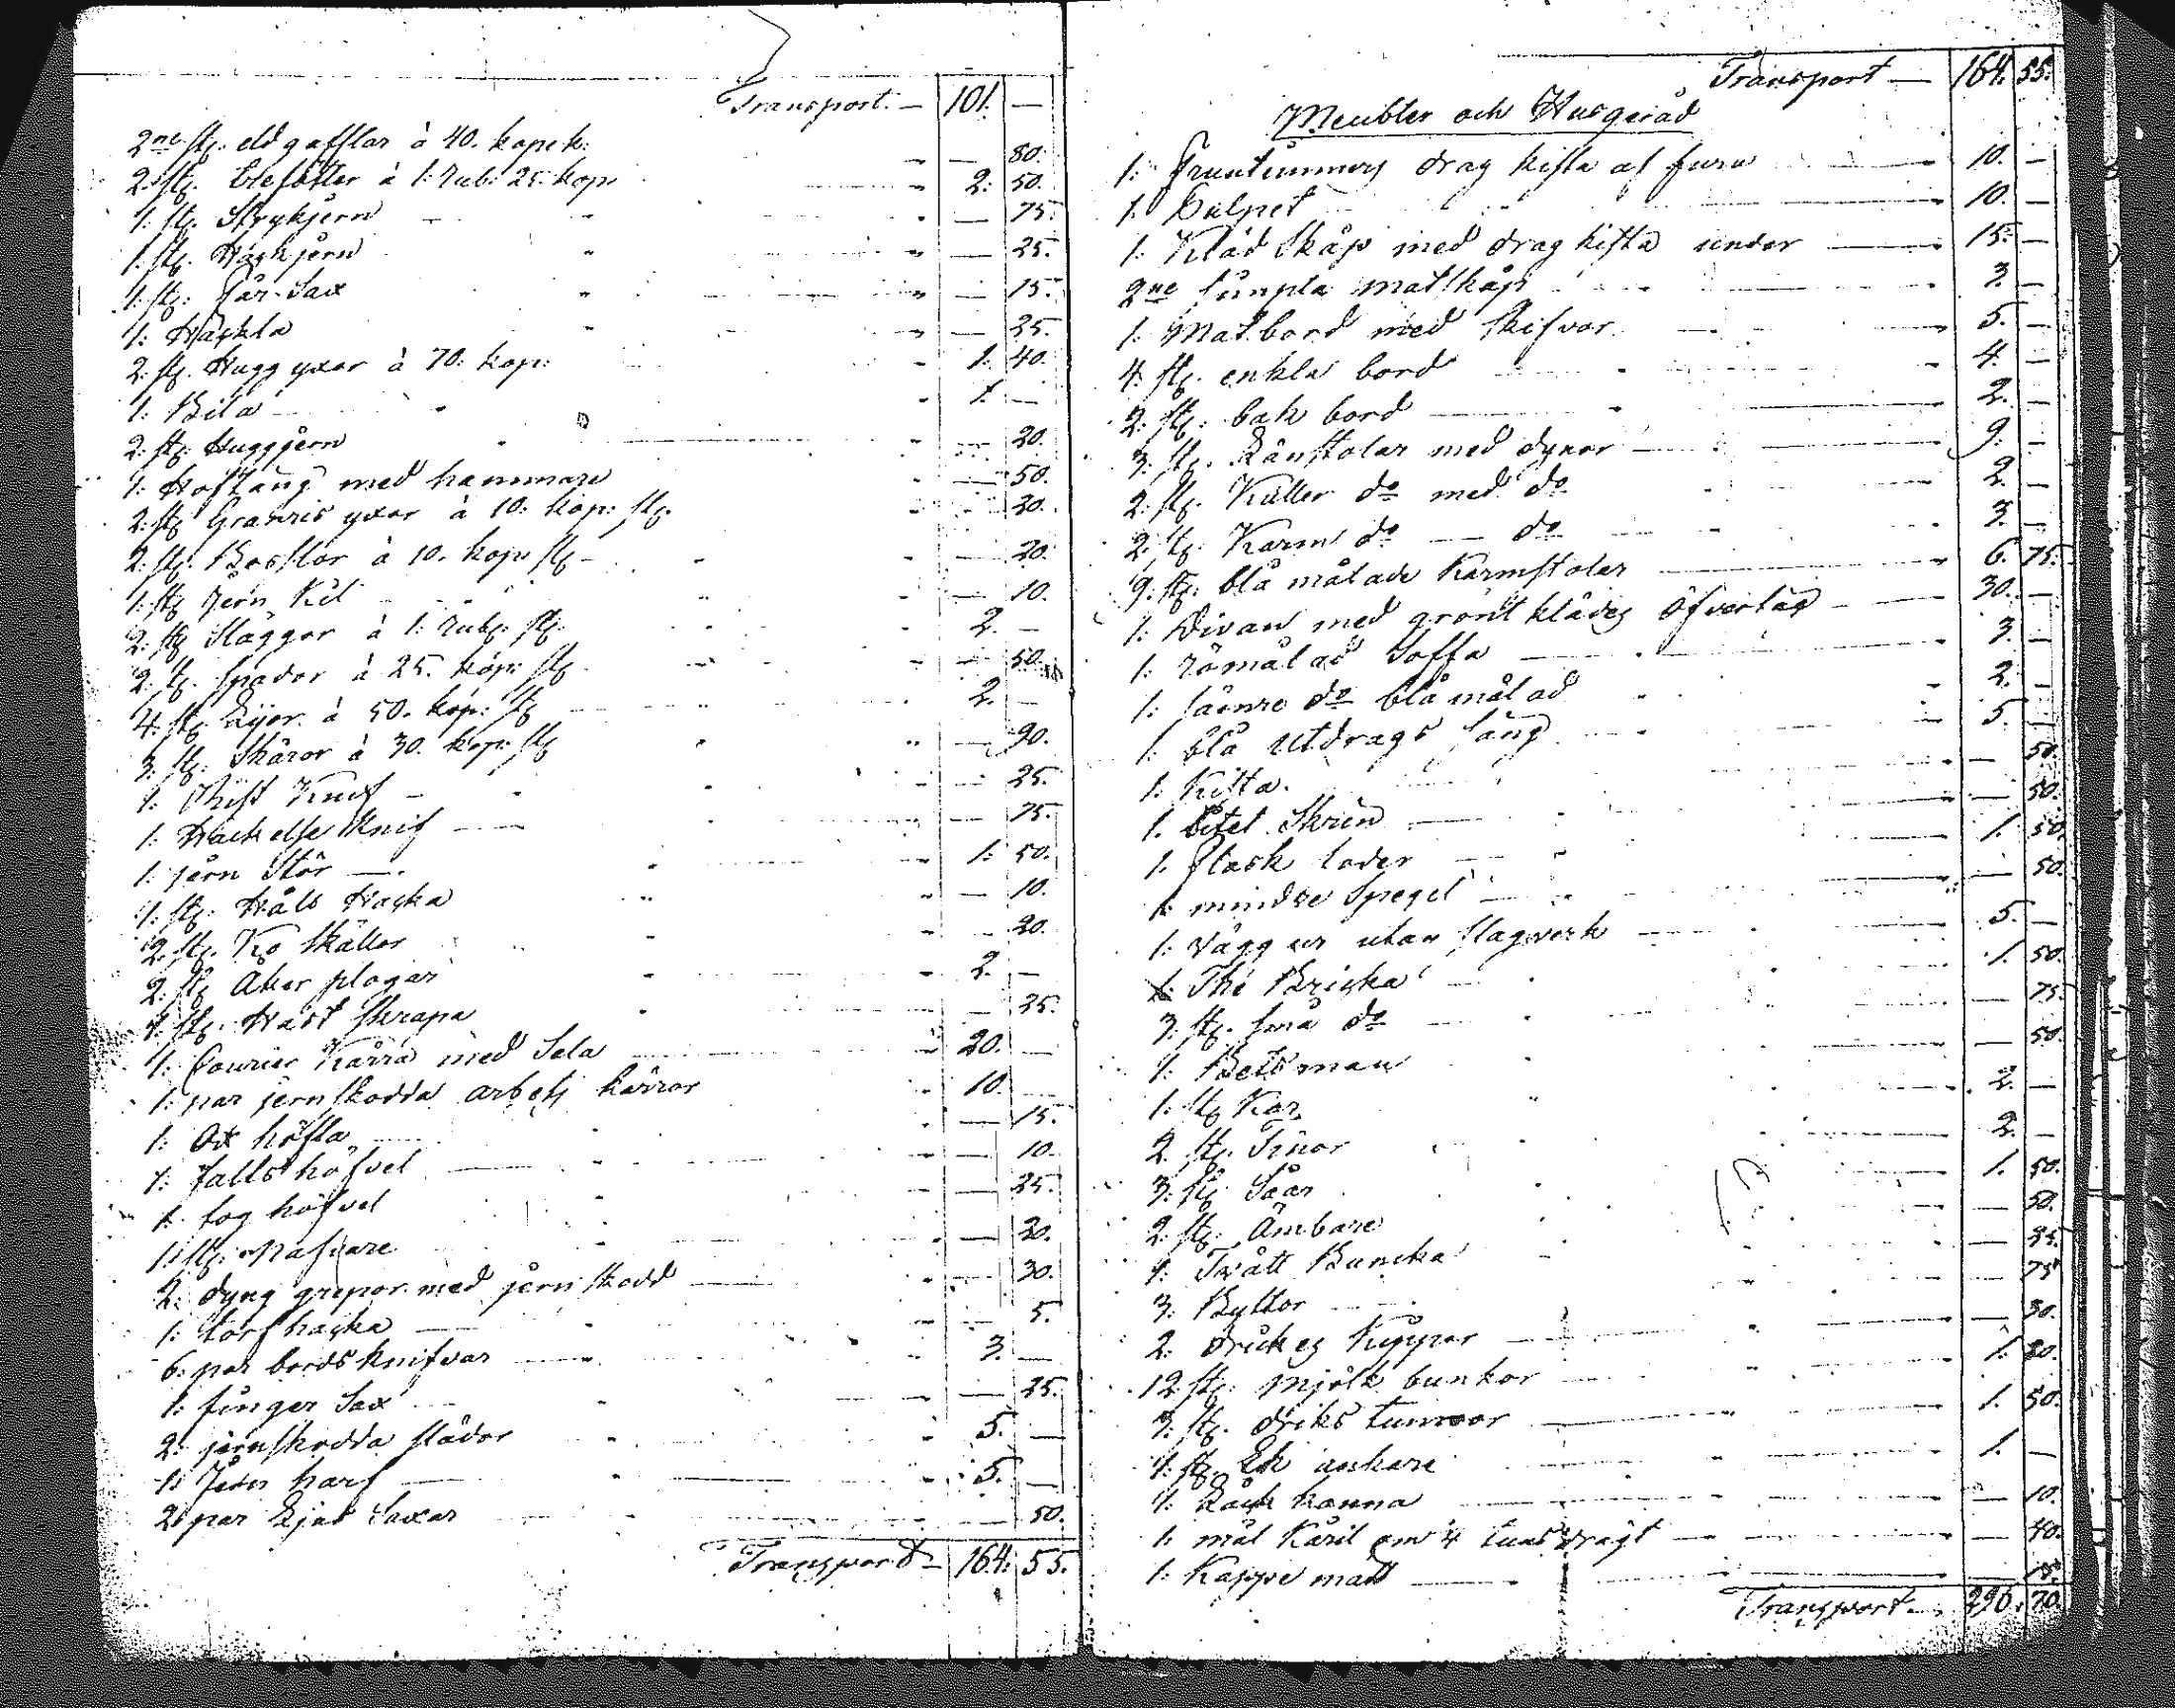 Transport. — 101. —
2ne st. eldgafflar à 40. kopek: — 80.
2: st. Elefötter à 1: Rub: 25: kop 2: 50.
1: st. Strykjern — 75.
1: st. Haskjern — 25.
1: st. Får-Sax — 15.
1: Häckla — 25.
2: st. Huggyxor à 70: kop: 1: 40.
1: Bila 1. —
2: st. Huggjern — 20.
1: Hoftång med hammare — 50.
2: st. Granris yxor à 10: kop: st. — 20.
2: st. Bosslor à 10. kop: st — 20.
1: st Jern Kil — 10.
2: st Släggor à 1: Rub: st: 2. —
2: st. Spador à 25. kop: st — 50.
4: st. Lijor à 50. kop: st 2. —
3: st. Skäror à 30. kop: st — 90.
1: Rist Knif — — 25.
1: Hackelse Knif — — 75.
1: jern Stör — 1: 50.
1: st. Håls Haska — 10.
2: st. Ko Skällor — 20.
2: st Åker plogar 2. —
1: st. Häst Skrapa — 35.
1: Courier Kärra med Sela 20. —
1: par jernskodda arbets kärror 10. —
1: Ox höfla — 15.
1: falls höfvel — 10.
1: log höfvel — 25.
1: st. Nafvare — 20.
2: dyng grepor med jernskodd — 30.
1: torf haska — 5.
6: par bords knifvar 3. —
1: finger Sax — 25.
2: jernskodda slädor 5. —
1: Jern harf 5. —
2: par Ljus Saxar — 50.
Transport — 164: 55.
Transport — 164. 55.
Meubler och Husgeråd
1: Fruntimmers drag kista af furu 10. —
1: Pulpet 10. —
1: Kläd Skåp med drag kista under 15. —
2ne simpla matskåp 3. —
1: Matbord med skifvor 5. —
4: st. enkla bord 4. —
2: st: bak bord 2. —
3: st. Länstolar med dynor 9. —
2: st. Kuller do med do 2. —
2: st. Karm do — do 3. —
9: st: blå målade Karmstolar 6. 75.
1: Divan med grönt klädes öfverlag 30. —
1: römålad Soffa 3. —
1: sämre do blå målad 2. —
1: blå utdrags säng 5. —
1: Kista. — 50.
1. Litet Skrin — 50.
1. flask loder 1. 50.
1: mindre Spegel — 50.
1: vägg ur utan slagverk 5. —
1: The Bricka 1. 50.
3: st. små do — 75.
1: Betsman — 50.
1: st Kar 2. —
2. st. Tinor 2. —
3: st: Såar 1. 50.
2: st. Ämbare — 50.
1: Tvätt Buncka — 25.
3: Byttor — 75.
2: drickes Kippor — 30.
12: st: mjölk bunkor 1. 20.
3: st. driks tunnor 1. 50.
1: st. Ek ankare 1. —
1: Räck kanna — 10.
1: mål Käril om 4 tums drägt — 40.
1: Kappe mått — 15.
Transport — 296. 70.